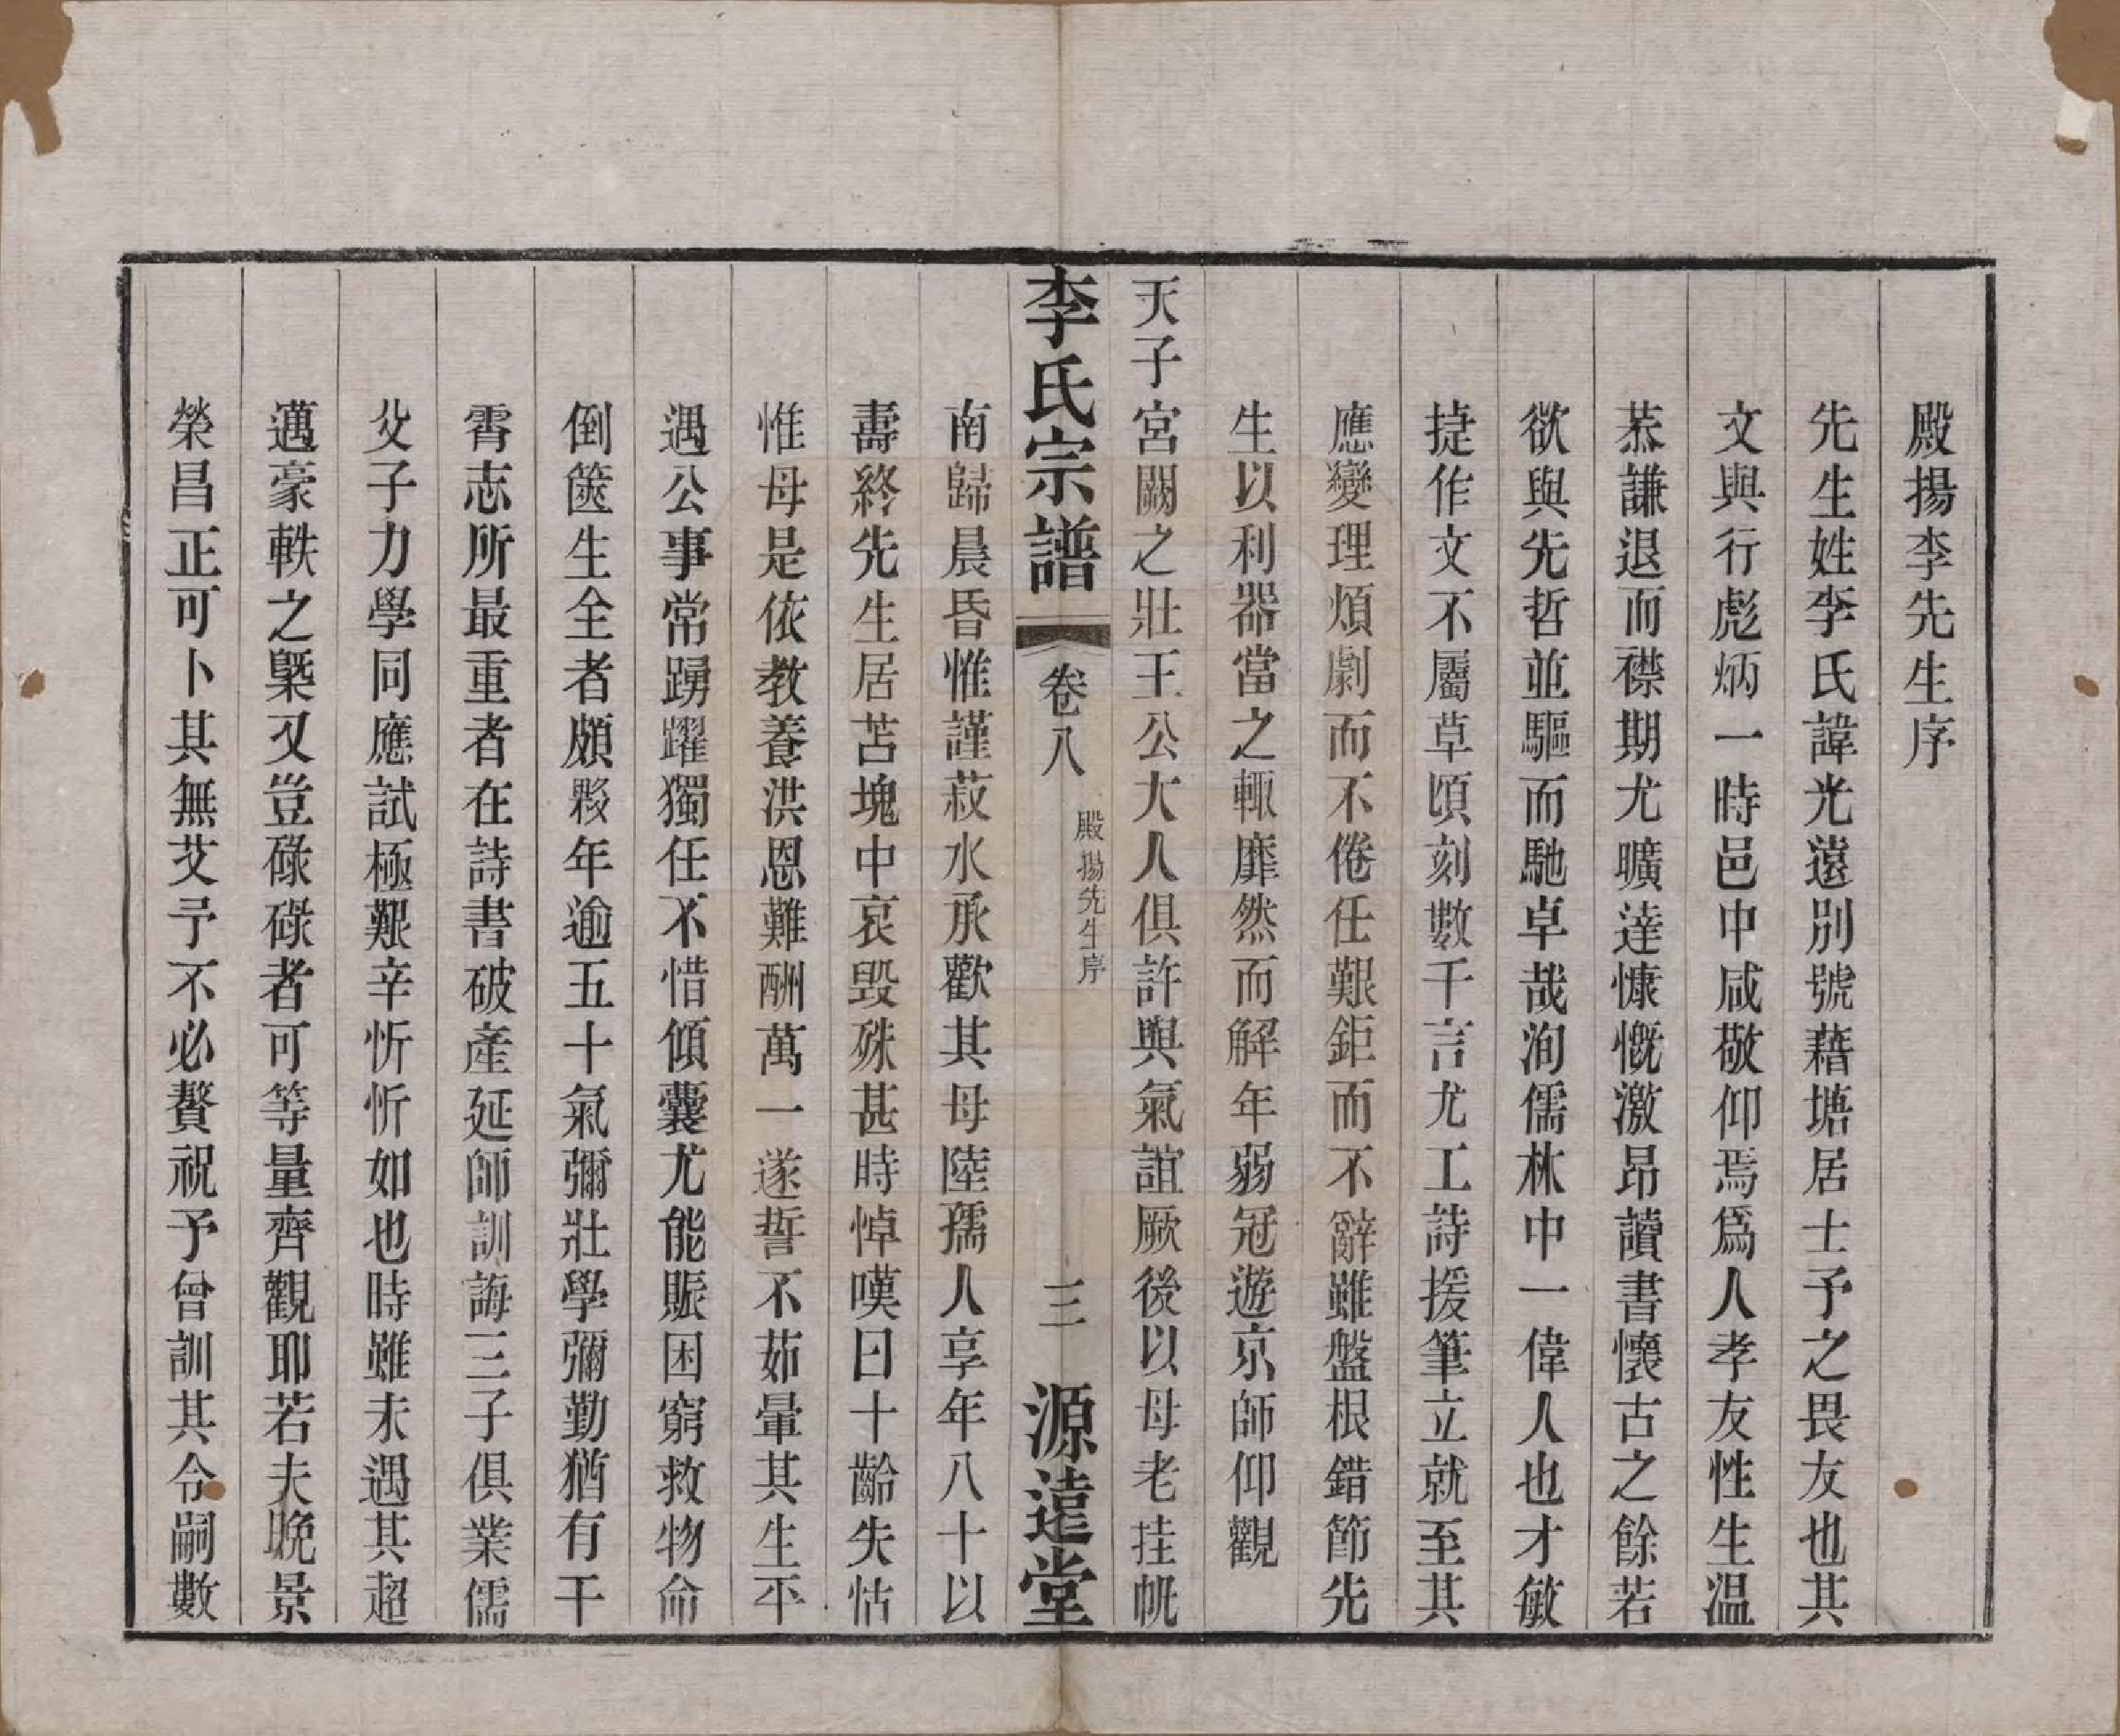 殿揚李先生序
先生姓李氏諱光遠別號藉塘居士予之畏友也其
文與行彪炳一時邑中咸敬仰焉爲人孝友性生温
恭謙退而襟期尤曠達慷慨激昂讀書懷古之餘若
欲與先哲並驅而馳卓哉洵儒林中一偉人也才敏
捷作文不屬草頃刻數千言尤工詩援筆立就至其
應變理煩劇而不倦任艱鉅而不辭雖盤根錯節先
生以利器當之輙靡然而解年弱冠遊京師仰觀
天子宮闕之壯王公大人俱許與氣誼厥後以母老挂帆
李氏宗譜 卷八 殿揚先生序 三 源遠堂
南歸晨昏惟謹菽水承歡其母陸孺人享年八十以
壽終先生居苫塊中哀毀殊甚時悼嘆曰十齡失怙
惟母是依教養洪恩難酬萬一遂誓不茹葷其生平
遇公事常踴躍獨任不惜傾囊尤能賑困窮救物命
倒篋生全者頗夥年逾五十氣彌壯學彌勤猶有干
霄志所最重者在詩書破產延師訓誨三子俱業儒
父子力學同應試極艱辛忻忻如也時雖未遇其超
邁豪軼之槩又豈碌碌者可等量齊觀耶若夫晚景
榮昌正可卜其無艾予不必贅祝予曾訓其令嗣數